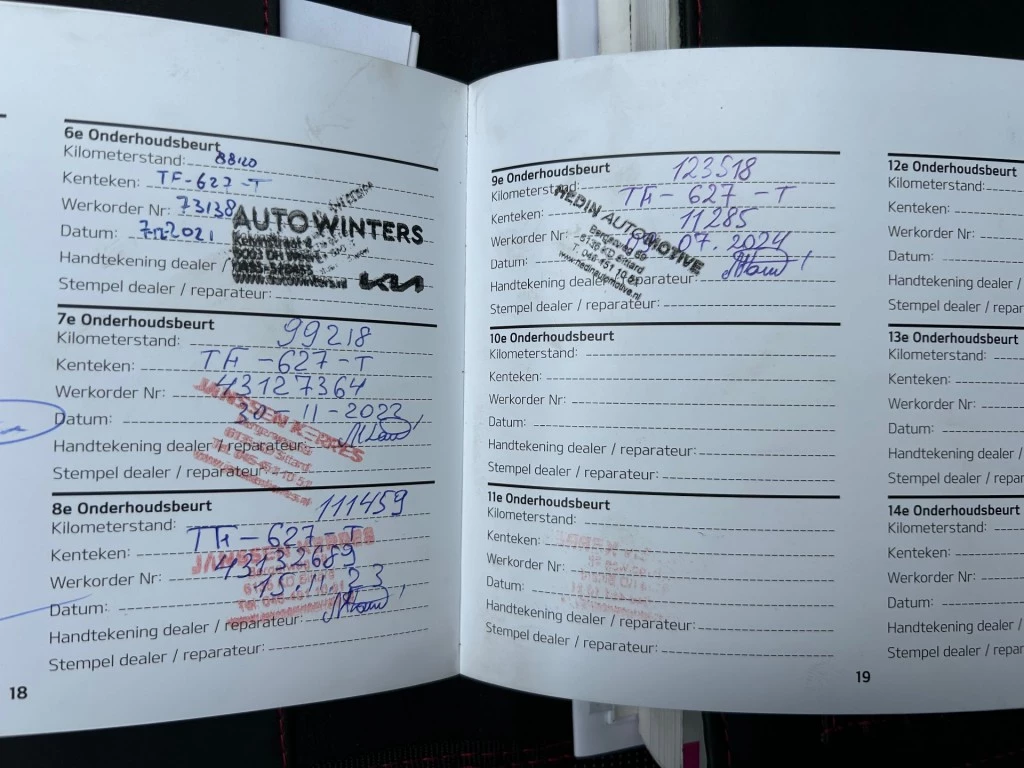 6e Onderhoudsbeurt
Kilometerstand: 88120
Kenteken: TF-627-T
Werkorder Nr: 73138
Datum: 7-12-2021
Handtekening dealer /
Stempel dealer / reparateur:
AUTO WINTERS
www.autowinters.nl
KIA
7e Onderhoudsbeurt
Kilometerstand: 99218
Kenteken: TF-627-T
Werkorder Nr: 43127364
Datum: 30-11-2022
Handtekening dealer / reparateur:
Stempel dealer / reparateur:
JANSSEN KERRES
Sittard
8e Onderhoudsbeurt
Kilometerstand: 111459
Kenteken: TF-627-T
Werkorder Nr: 43132689
Datum: 15.11.23
Handtekening dealer / reparateur:
Stempel dealer / reparateur:
JANSSEN KERRES
18
9e Onderhoudsbeurt
Kilometerstand: 123518
Kenteken: TF-627-T
Werkorder Nr: 11285
Datum: 07.2024
Handtekening dealer / reparateur:
Stempel dealer / reparateur:
HEDIN AUTOMOTIVE
Bergerweg 69
6135 KD Sittard
T. 046-451 10 51
www.hedinautomotive.nl
10e Onderhoudsbeurt
Kilometerstand:
Kenteken:
Werkorder Nr:
Datum:
Handtekening dealer / reparateur:
Stempel dealer / reparateur:
11e Onderhoudsbeurt
Kilometerstand:
Kenteken:
Werkorder Nr:
Datum:
Handtekening dealer / reparateur:
Stempel dealer / reparateur:
19
12e Onderhoudsbeurt
Kilometerstand:
Kenteken:
Werkorder Nr:
Datum:
Handtekening dealer /
Stempel dealer / repar
13e Onderhoudsbeurt
Kilometerstand:
Kenteken:
Werkorder Nr:
Datum:
Handtekening dealer /
Stempel dealer / repar
14e Onderhoudsbeurt
Kilometerstand:
Kenteken:
Werkorder Nr:
Datum:
Handtekening dealer /
Stempel dealer / repar